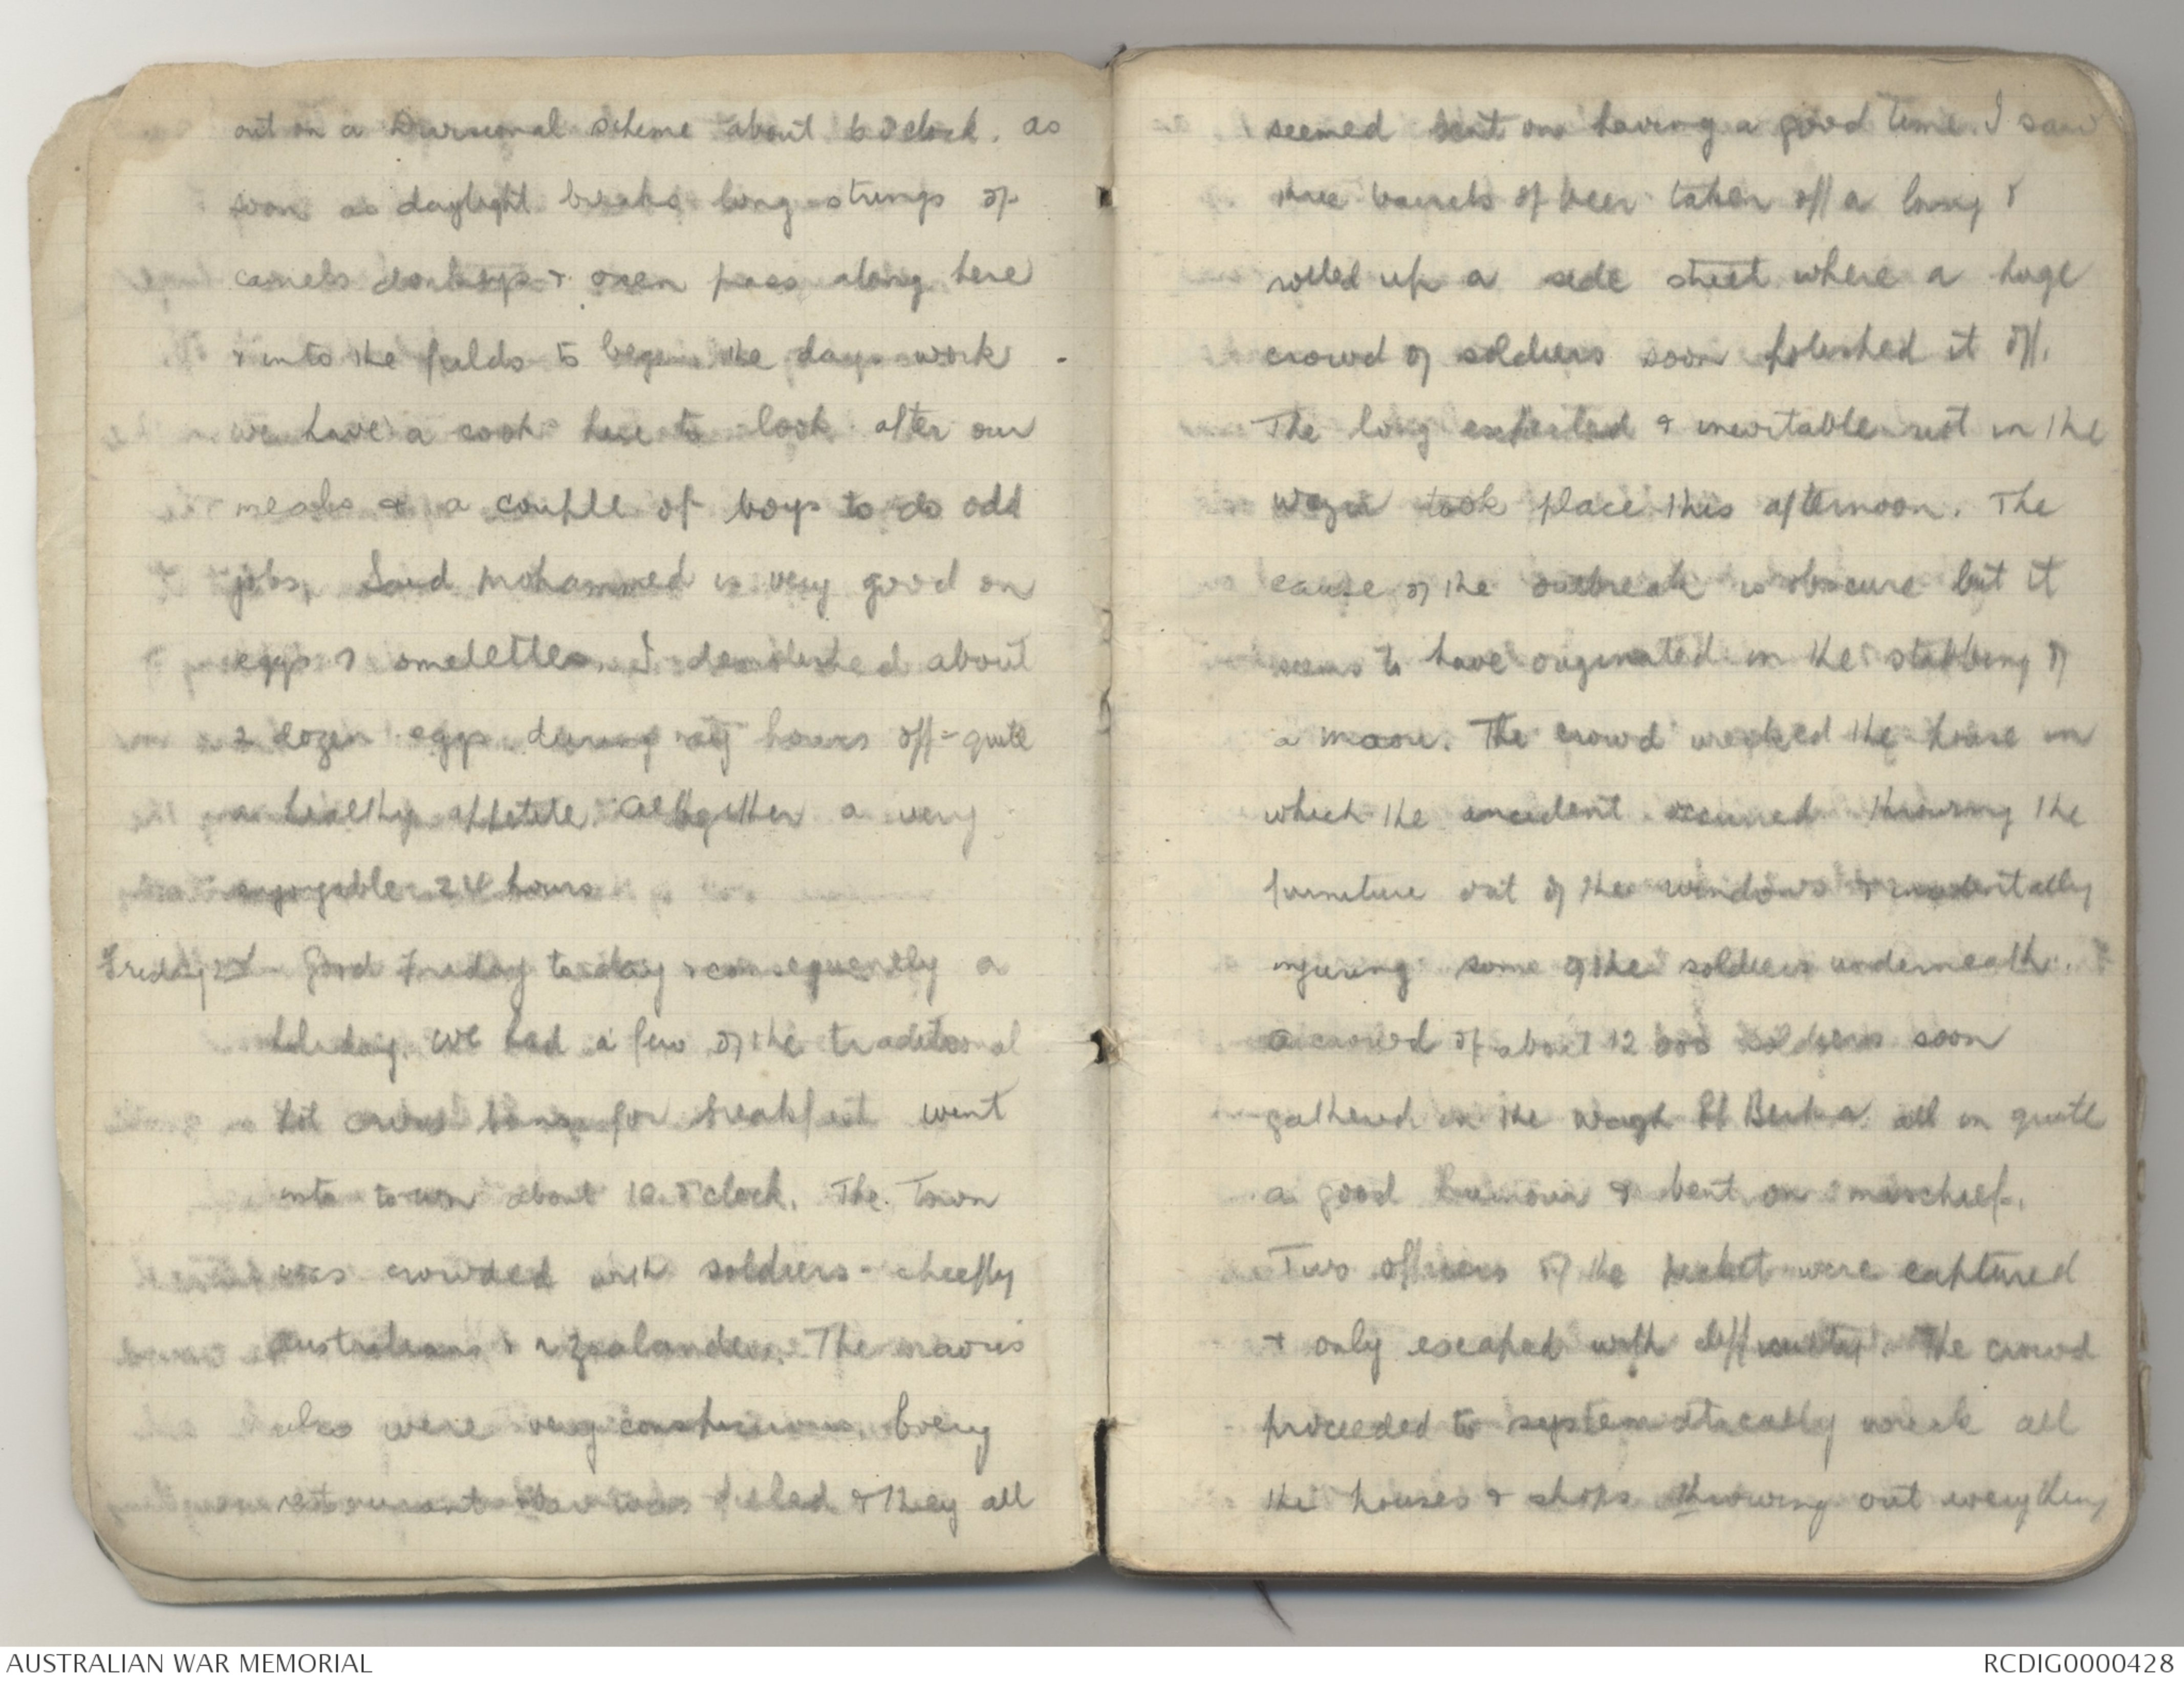 out on a Divisional scheme about 6 o'clock. as
soon as daylight breaks long strings of
camels donkeys & oxen pass along here
& into the fields to begin the days work.
we have a cook here to look after our
meals & a couple of boys to do odd
jobs, Said Mohammed is very good on
eggs & omelettes. I demolished about
2 dozen eggs during my hours off - quite
a healthy appetite. Altogether a very
enjoyable 24 hours
Friday 2nd Good Friday to day & consequently a
holiday. We had a few of the traditional
hot cross buns for breakfast went
into town about 10 o'clock. The Town
was crowded with soldiers - chiefly
Australians & n Zealanders. The maoris
also were very conspicuous. Every
restaurant was filled & they all
seemed bent on having a good time. I saw
three barrels of beer taken off a lorry &
rolled up a side street where a huge
crowd of soldiers soon polished it off.
The long expected & inevitable riot in the
Wazir took place this afternoon. The
cause of the outbreak is obscure but it
seems to have originated in the stabbing of
a maori. The crowd wrecked the house in
which the incident occurred throwing the
furniture out of the windows & incidentally
injuring some of the soldiers underneath.
A crowd of about 12 000 soldiers soon
gathered in the Wagh El Birka all in quite
a good humour & bent on mischief.
Two officers of the picket were captured
& only escaped with difficulty. The crowd
proceeded to systematically wreck all
the houses & shops throwing out everything
AUSTRALIAN WAR MEMORIAL
RCDIG0000428